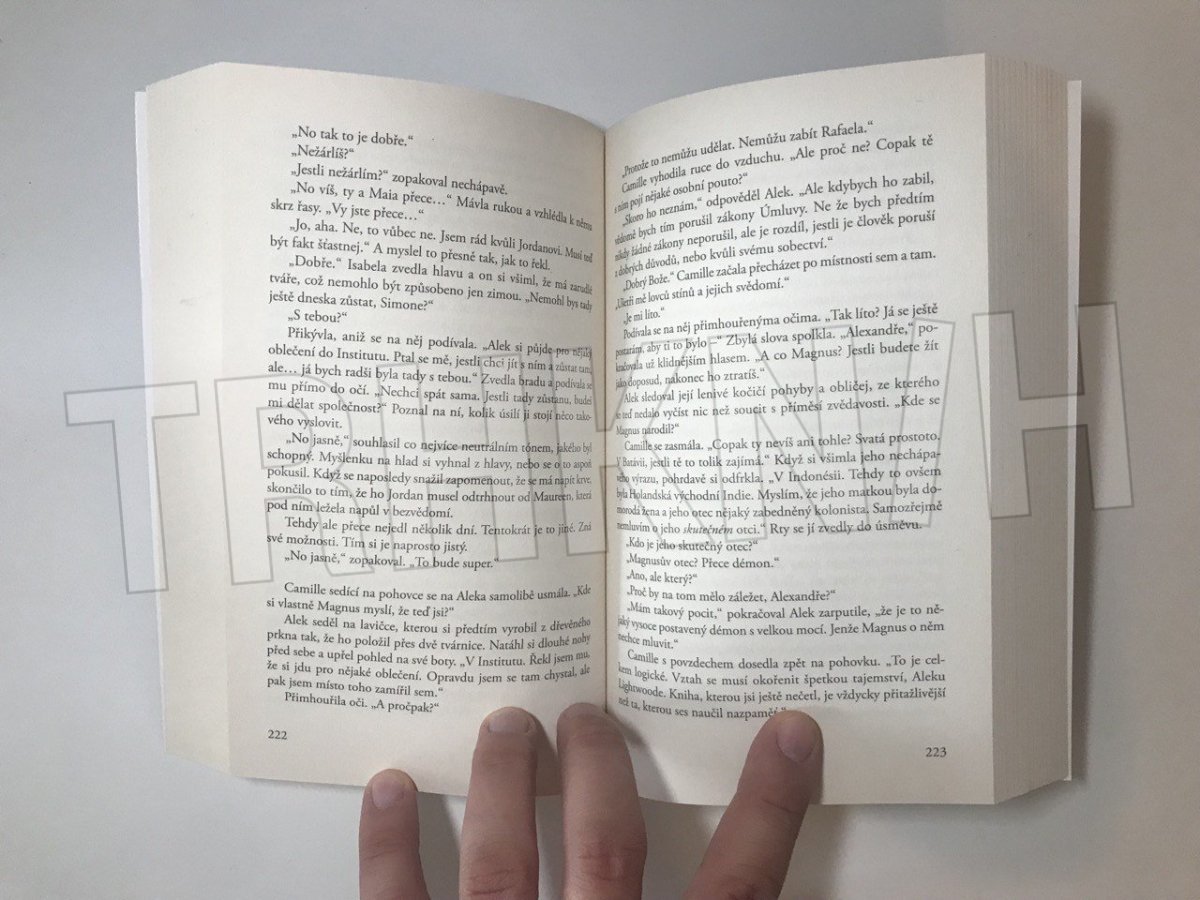 „No tak to je dobře.“
„Nežárlíš?“
„Jestli nežárlím?“ zopakoval nechápavě.
„No víš, ty a Maia přece…“ Mávla rukou a vzhlédla k němu
skrz řasy. „Vy jste přece…“
„Jo, aha. Ne, to vůbec ne. Jsem rád kvůli Jordanovi. Musí teď
být fakt šťastnej.“ A myslel to přesně tak, jak to řekl.
„Dobře.“ Isabela zvedla hlavu a on si všiml, že má zarudlé
tváře, což nemohlo být způsobeno jen zimou. „Nemohl bys tady
ještě dneska zůstat, Simone?“
„S tebou?“
Přikývla, aniž se na něj podívala. „Alek si půjde pro nějaký
oblečení do Institutu. Ptal se mě, jestli chci jít s ním a zůstat tam,
ale… já bych radši byla tady s tebou.“ Zvedla bradu a podívala se
mu přímo do očí. „Nechci spát sama. Jestli tady zůstanu, budeš
mi dělat společnost?“ Poznal na ní, kolik úsilí ji stojí něco tako-
vého vyslovit.
„No jasně,“ souhlasil co nejvíce neutrálním tónem, jakého byl
schopný. Myšlenku na hlad si vyhnal z hlavy, nebo se o to aspoň
pokusil. Když se naposledy snažil zapomenout, že se má napít krve,
skončilo to tím, že ho Jordan musel odtrhnout od Maureen, která
pod ním ležela napůl v bezvědomí.
Tehdy ale přece nejedl několik dní. Tentokrát je to jiné. Zná
své možnosti. Tím si je naprosto jistý.
„No jasně,“ zopakoval. „To bude super.“
Camille sedící na pohovce se na Aleka samolibě usmála. „Kde
si vlastně Magnus myslí, že teď jsi?“
Alek seděl na lavičce, kterou si předtím vyrobil z dřevěného
prkna tak, že ho položil přes dvě tvárnice. Natáhl si dlouhé nohy
před sebe a upřel pohled na své boty. „V Institutu. Řekl jsem mu,
že si jdu pro nějaké oblečení. Opravdu jsem se tam chystal, ale
pak jsem místo toho zamířil sem.“
Přimhouřila oči. „A pročpak?“
222
„Protože to nemůžu udělat. Nemůžu zabít Rafaela.“
Camille vyhodila ruce do vzduchu. „Ale proč ne? Copak tě
s ním pojí nějaké osobní pouto?“
„Skoro ho neznám,“ odpověděl Alek. „Ale kdybych ho zabil,
vědomě bych tím porušil zákony Úmluvy. Ne že bych předtím
nikdy žádné zákony neporušil, ale je rozdíl, jestli je člověk poruší
z dobrých důvodů, nebo kvůli svému sobectví.“
„Dobrý Bože.“ Camille začala přecházet po místnosti sem a tam.
„Ušetři mě lovců stínů a jejich svědomí.“
„Je mi líto.“
Podívala se na něj přimhouřenýma očima. „Tak líto? Já se ještě
postarám, aby ti to bylo –“ Zbylá slova spolkla. „Alexandře,“ po-
kračovala už klidnějším hlasem. „A co Magnus? Jestli budete žít
jako doposud, nakonec ho ztratíš.“
Alek sledoval její lenivé kočičí pohyby a obličej, ze kterého
se teď nedalo vyčíst nic než soucit s příměsí zvědavosti. „Kde se
Magnus narodil?“
Camille se zasmála. „Copak ty nevíš ani tohle? Svatá prostoto.
V Batávii, jestli tě to tolik zajímá.“ Když si všimla jeho nechápa-
vého výrazu, pohrdavě si odfrkla. „V Indonésii. Tehdy to ovšem
byla Holandská východní Indie. Myslím, že jeho matkou byla do-
morodá žena a jeho otec nějaký zabedněný kolonista. Samozřejmě
nemluvím o jeho skutečném otci.“ Rty se jí zvedly do úsměvu.
„Kdo je jeho skutečný otec?“
„Magnusův otec? Přece démon.“
„Ano, ale který?“
„Proč by na tom mělo záležet, Alexandře?“
„Mám takový pocit,“ pokračoval Alek zarputile, „že je to ně-
jaký vysoce postavený démon s velkou mocí. Jenže Magnus o něm
nechce mluvit.“
Camille s povzdechem dosedla zpět na pohovku. „To je cel-
kem logické. Vztah se musí okořenit špetkou tajemství, Aleku
Lightwoode. Kniha, kterou jsi ještě nečetl, je vždycky přitažlivější
než ta, kterou ses naučil nazpaměť.“
223
TRHKNIH